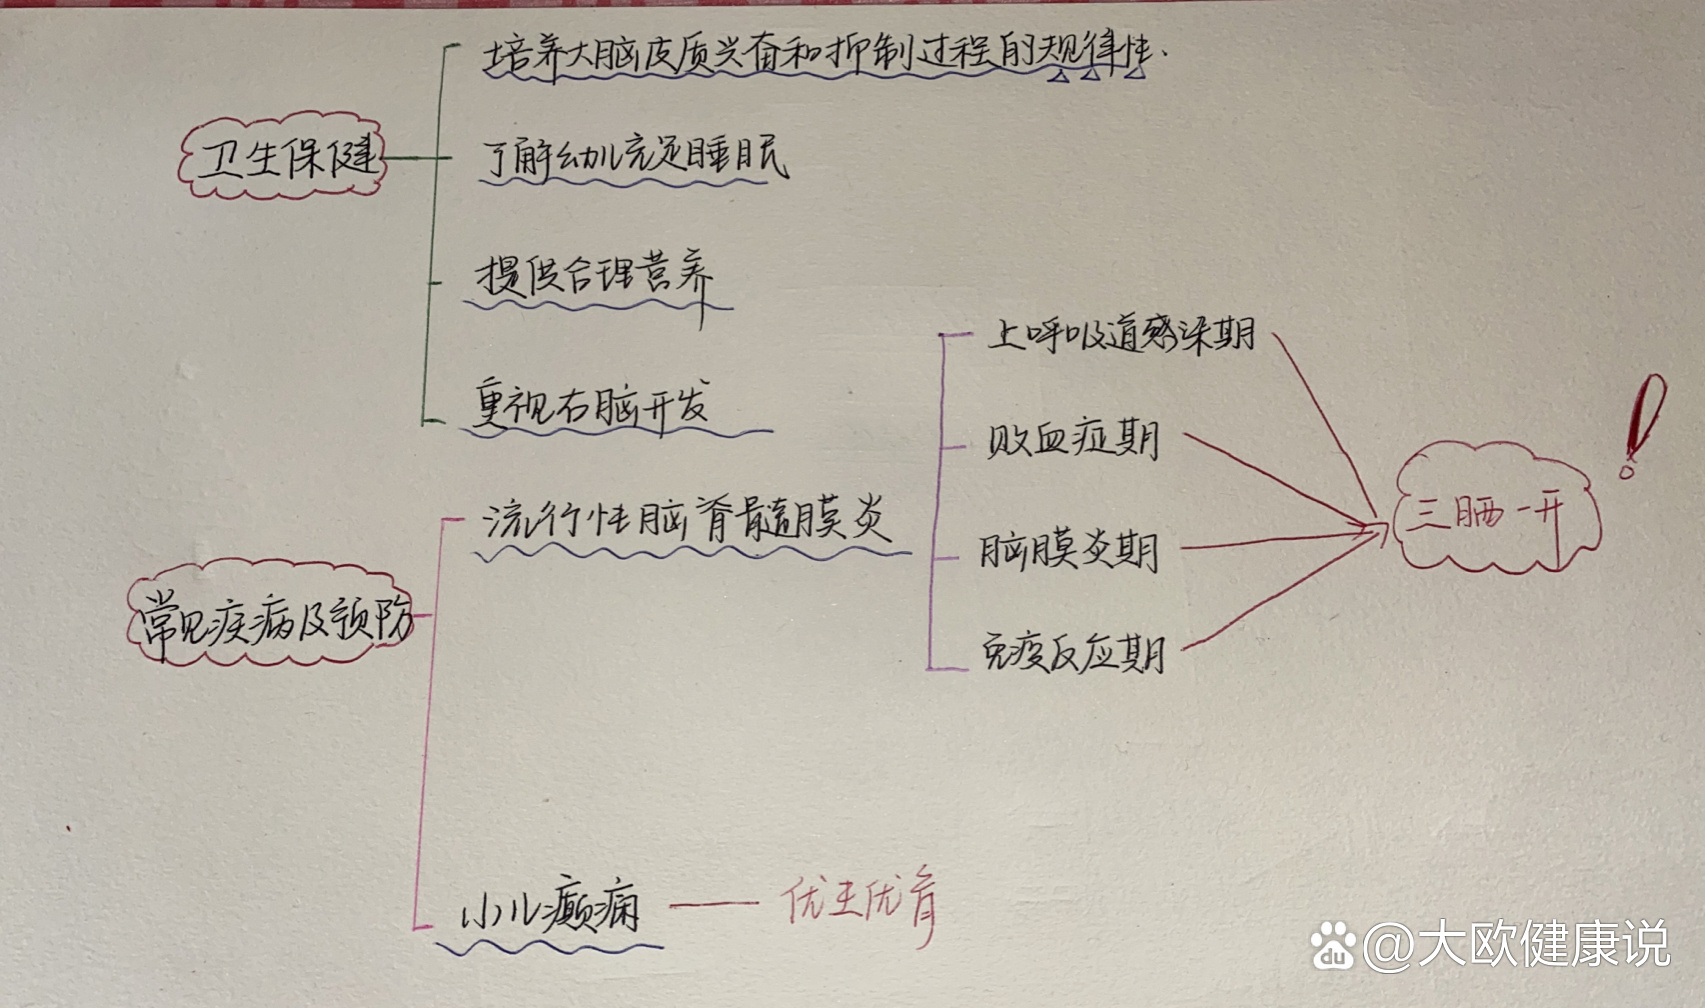 培养大脑皮质兴奋和抑制过程的规律性.
卫生保健
了解幼儿充足睡眠
提供合理营养
重视右脑开发
上呼吸道感染期
败血症期
流行性脑脊髓膜炎
三晒一开
!
脑膜炎期
常见疾病及预防
免疫反应期
小儿癫痫 —— 优生优育
du @大欧健康说